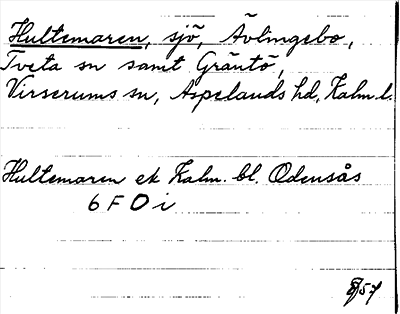 Hultemaren, sjö, Ävlingebo,
Tveta sn samt Gräntö,
Virserums sn, Aspelands hd, Kalm. l.
Hultemaren ek Kalm. bl. Odensås
6 F O i
57